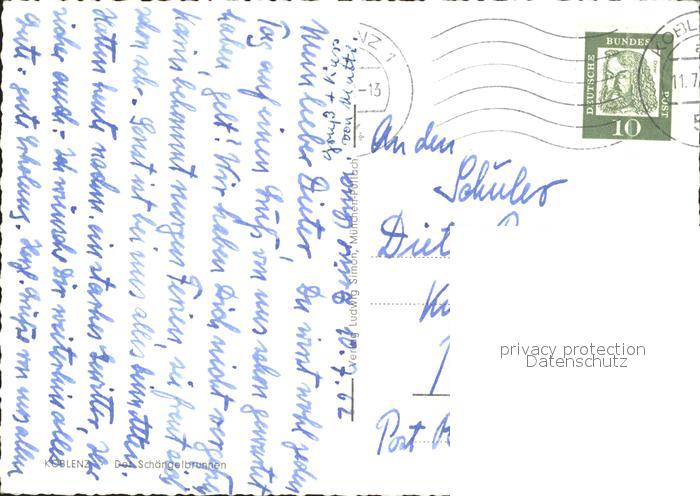 Mein lieber Dieter, Du wirst wohl jeden
Tag auf einen Gruß von uns schon gewartet
haben, gelt! Wir haben Dich nicht vergessen.
Karin bekommt morgen Ferien, sie freut sich
schon
ab. Sonst ist bei uns alles beim Alten.
Hatten heute nachm. ein starkes Gewitter, Ihr
sicher auch. Ich wünsche Dir weiterhin alles
gute + gute Erholung. Herzl. Grüße von uns allen
Deine Oma.
Gruß + Kuss
von Mutti.
KOBLENZ Der Schängelbrunnen
Verlag Ludwig Simon, München-Pullach
NZ 1
-13
KOBL
11.7
DEUTSCHE
BUNDES
POST
10
An den
Schüler
Diet
Post
privacy protection
Datenschutz